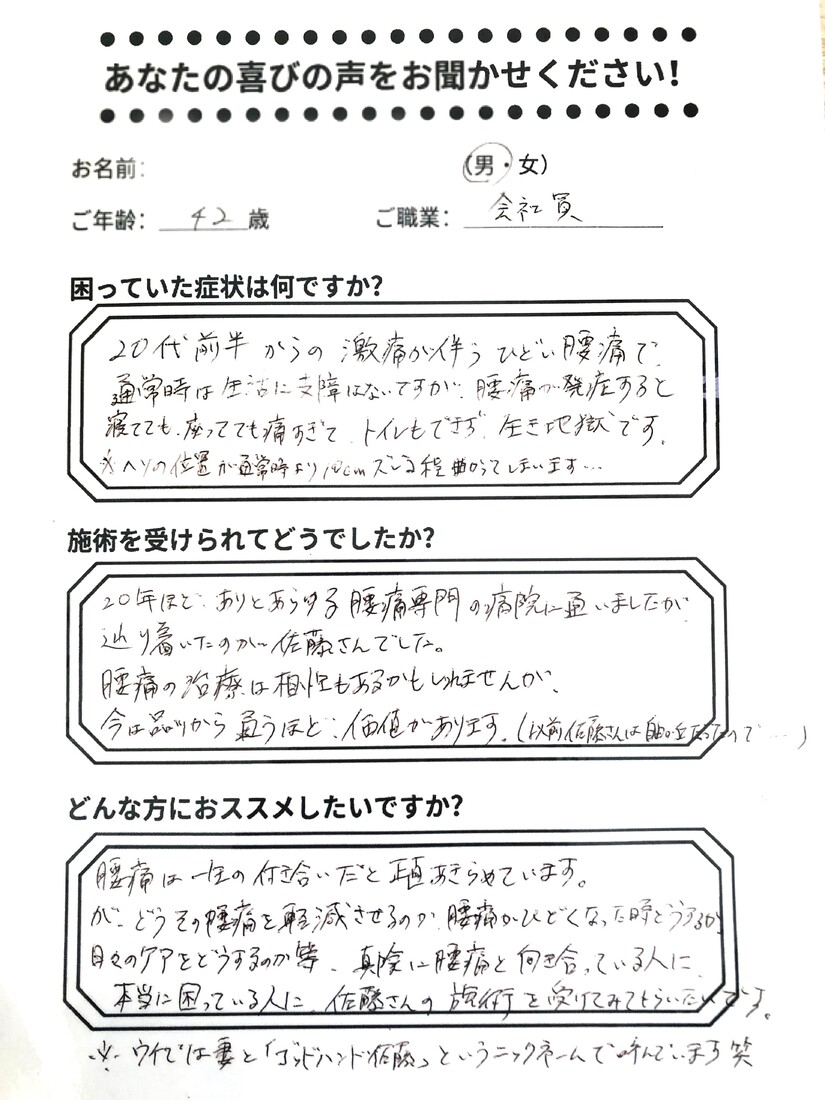 あなたの喜びの声をお聞かせください!
お名前: (男・女)
ご年齢: 42歳 ご職業: 会社員
困っていた症状は何ですか?
20代前半からの激痛が伴うひどい腰痛で、
通常時は生活に支障はないですが、腰痛が発症すると
寝てても、座ってても痛すぎて、トイレもできず、生き地獄です。
※ヘソの位置が通常時より10cmズレる程曲がってしまいます…
施術を受けられてどうでしたか?
20年ほど、ありとあらゆる腰痛専門の病院に通いましたが、
辿り着いたのが佐藤さんでした。
腰痛の治療は相性もあるかもしれませんが、
今は品川から通うほど、価値があります。(以前佐藤さんは自由が丘だったので…)
どんな方におススメしたいですか?
腰痛は一生の付き合いだと正直あきらめています。
が、どうその腰痛を軽減させるのか、腰痛がひどくなった時どうするか、
日々のケアをどうするのか等、真険に腰痛と向き合っている人に、
本当に困っている人に、佐藤さんの施術を受けてみてもらいたいです。
※ウチでは妻と「ゴッドハンド佐藤」というニックネームで呼んでいます笑